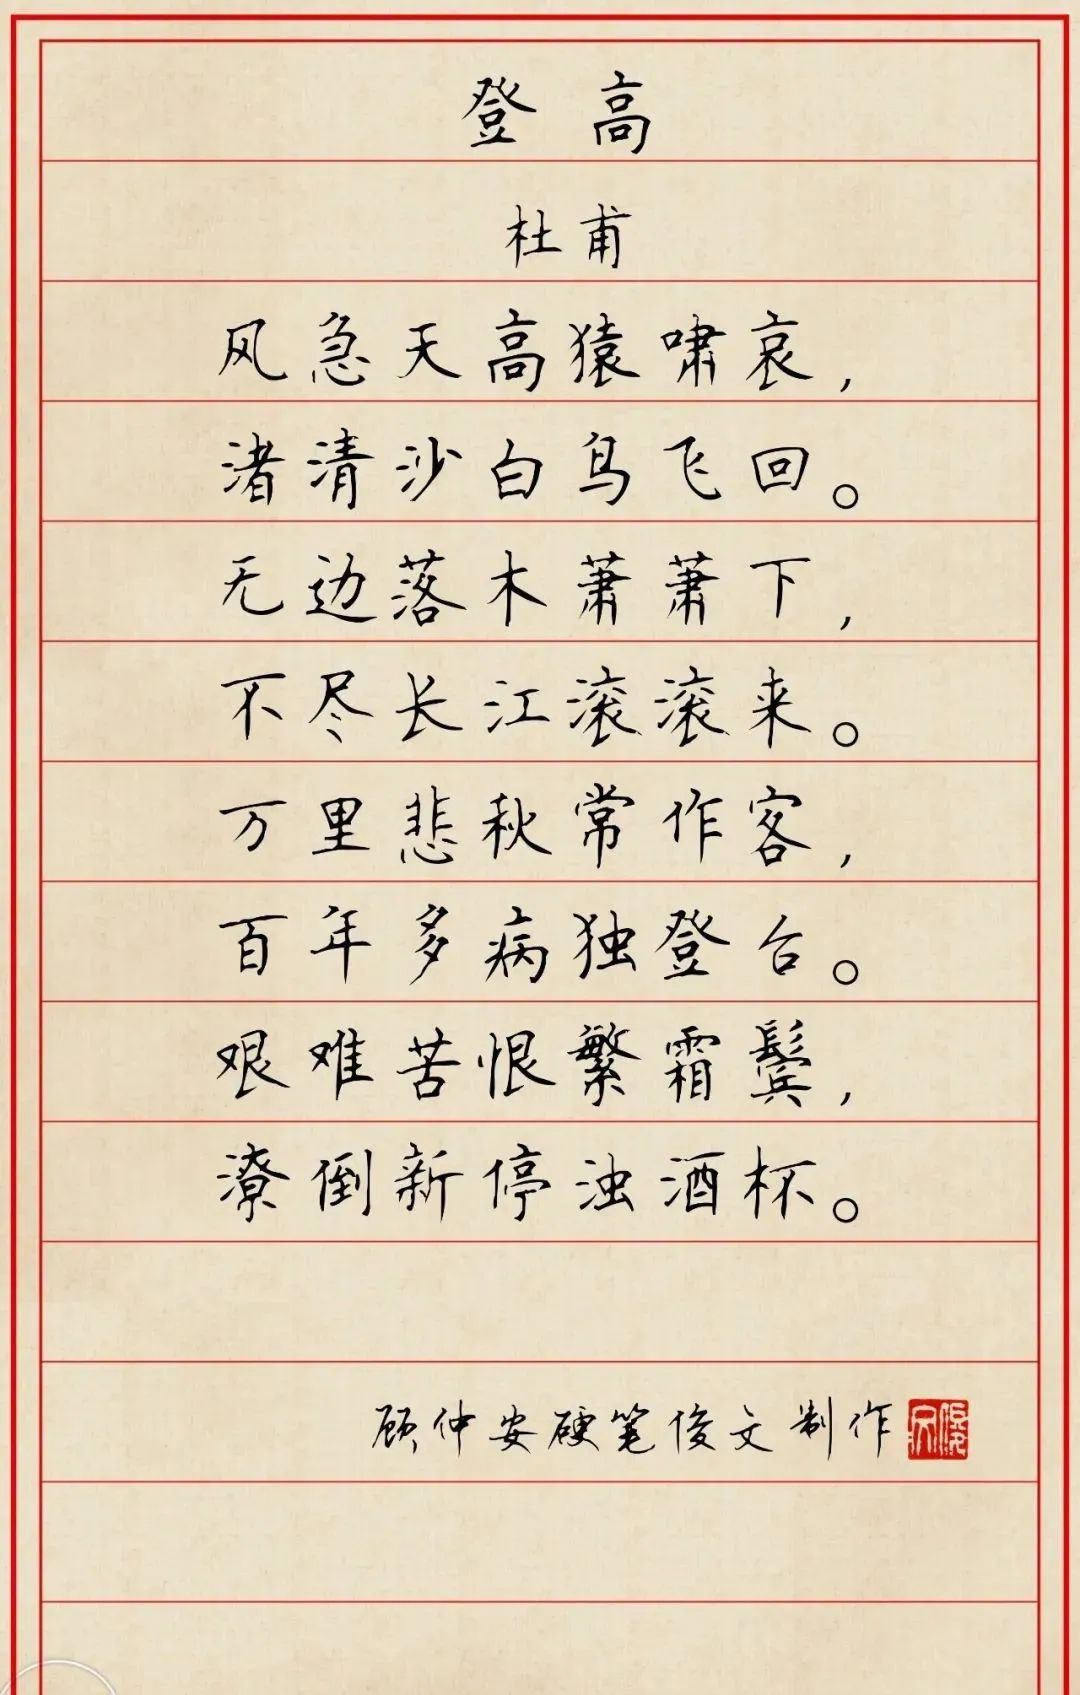 登高
杜甫
风急天高猿啸哀，
渚清沙白鸟飞回。
无边落木萧萧下，
不尽长江滚滚来。
万里悲秋常作客，
百年多病独登台。
艰难苦恨繁霜鬓，
潦倒新停浊酒杯。
顾仲安硬笔俊文制作